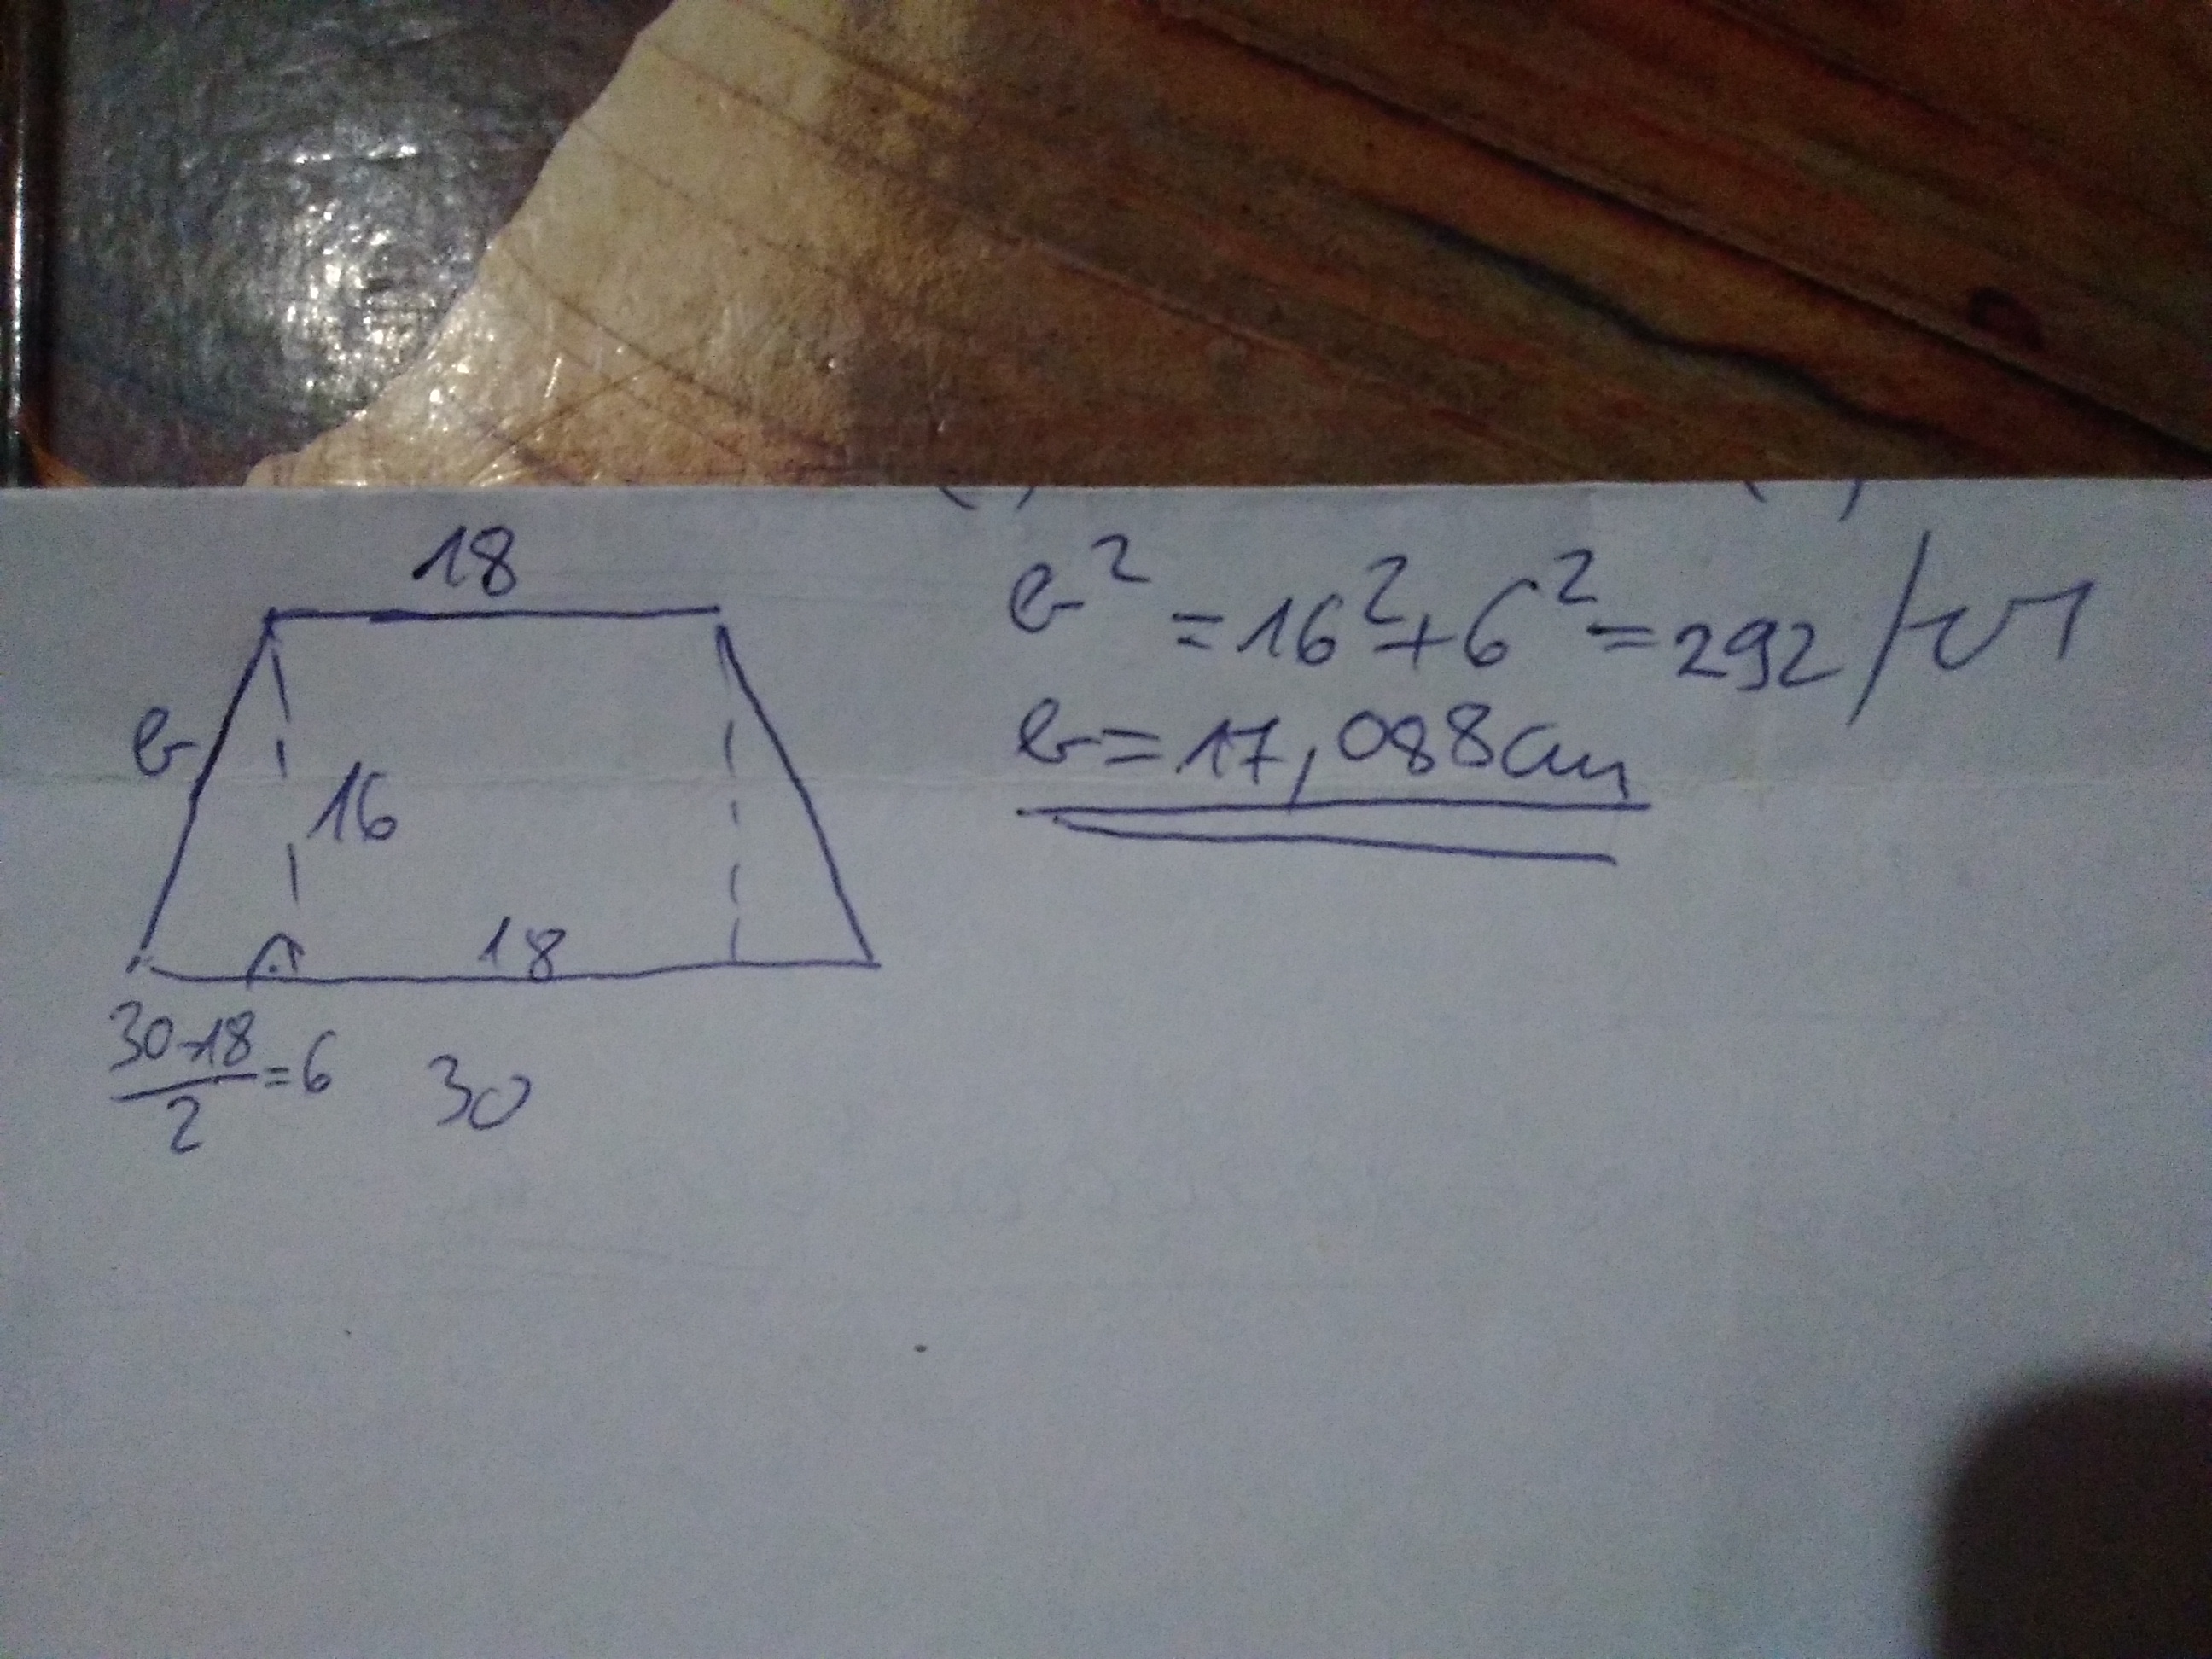 18
b
16
18
30-18/2=6
30
b²=16²+6²=292/√
b=17,088cm